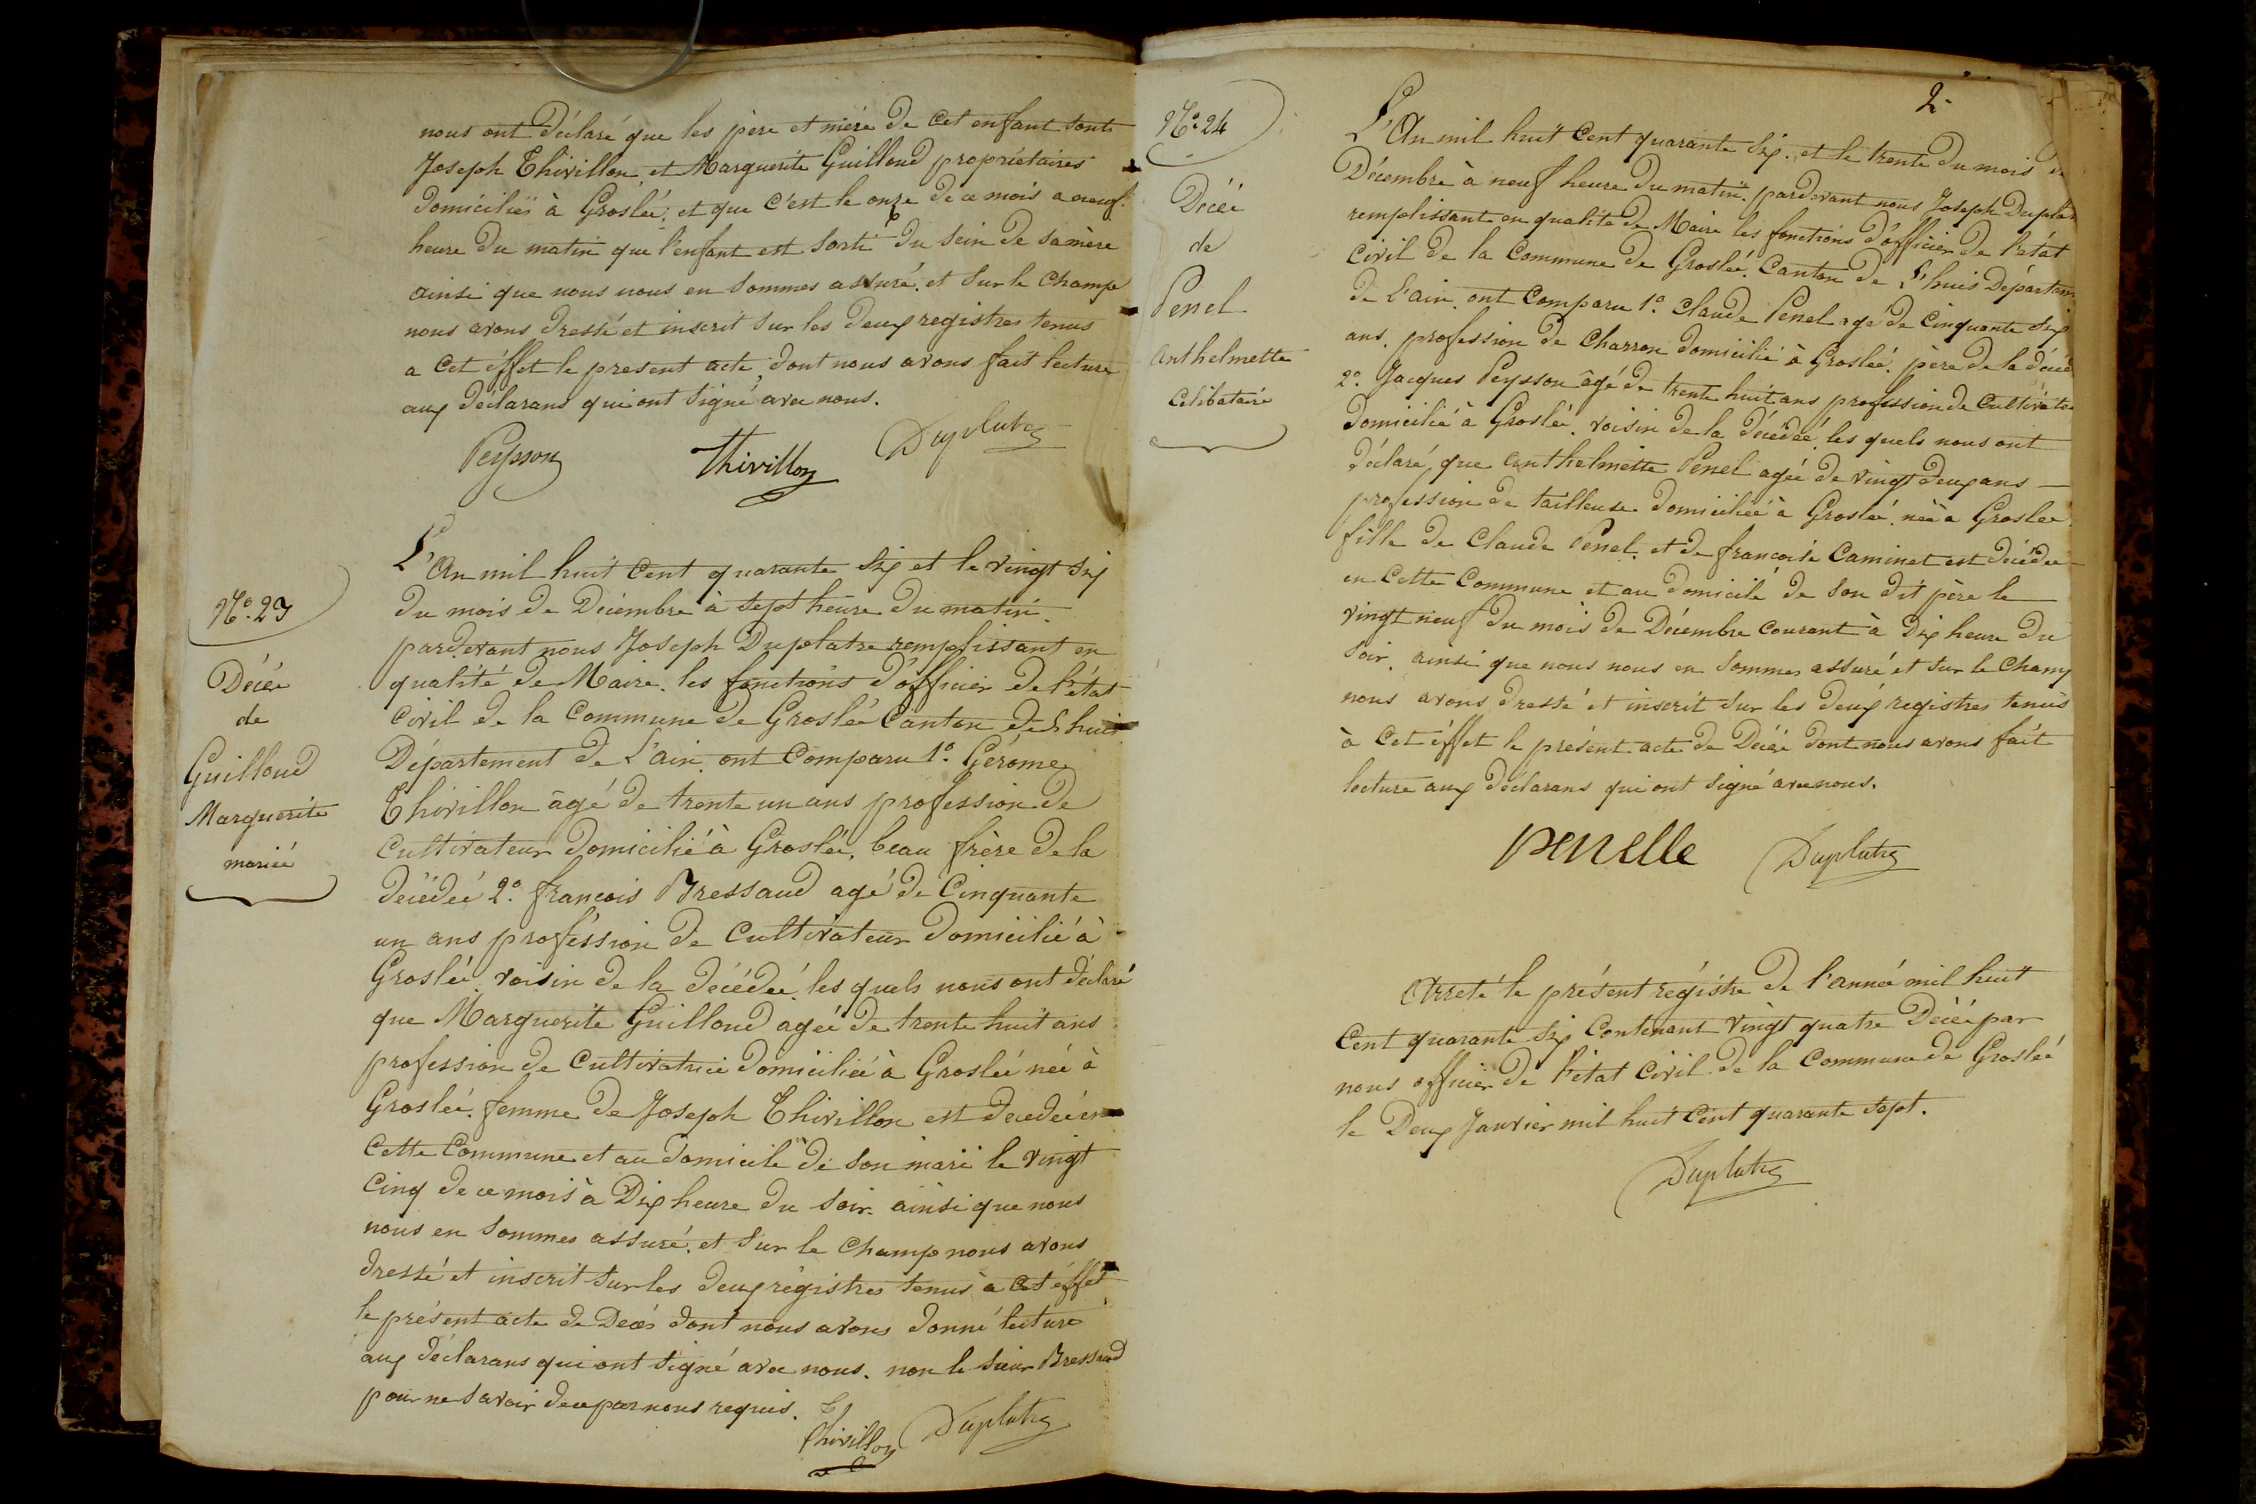 nous ont déclaré que les père et mère de cet enfant sont
Joseph Thivillon et Marguerite Guilloud propriétaires
domiciliés à Groslée, et que c'est le onze de ce mois a neuf
heure du matin que l'enfant est sorti du sein de sa mère
ainsi que nous nous en sommes assuré. et sur le champ
nous avons dressé et inscrit sur les deux registres tenus
a cet éffet le present acte, dont nous avons fait lecture
aux déclarans qui ont signé avec nous.
Peysson Thivillon Duplatre
N.o 23
Décée
de
Guilloud
Marguerite
mariée
L'An mil huit cent quarante six et le vingt six
du mois de Décembre à sept heure du matin.
pardevant nous Joseph Duplatre remplissant en
qualité de Maire. les fonctions d'officier de l'état
civil de la commune de Groslée canton de Lhuis
Département de L'ain. ont comparu 1.o Gérome
Thivillon âgé de trente un ans profession de
cultivateur domicilié à Groslée, beau frère de la
décédée 2.o françois Bressaud agé de cinquante
un ans profession de cultivateur domicilié à
Groslée, voisin de la décédée, les quels nous ont déclaré
que Marguerite Guilloud agée de trente huit ans
profession de cultivatrice domiciliée à Groslée née à
Groslée. femme de Joseph Thivillon est décédée en
cette commune et au domicile de son mari le vingt
cinq de ce mois à Dix heure du soir. ainsi que nous
nous en sommes assuré. et sur le champ nous avons
dressé et inscrit sur les deux régistres tenus à cet éffet
le présent acte de Décés dont nous avons donné lecture
aux déclarans qui ont signé avec nous. non le sieur Bressaud
pour ne savoir de ce par nous requis.
Thivillon Duplatre
2
N.o 24
Décée
de
Penel
Anthelmette
Celibataire
L'An mil huit cent quarante six. et le trente du mois de
Décembre à neuf heure du matin. pardevant nous Joseph Duplatr
remplissant en qualité de Maire les fonctions d'officier de l'état
civil de la commune de Groslée. canton de L'huis Départem
de L'ain. ont comparu 1.o claude Penel agé de cinquante six
ans. profession de charron domicilié à Groslée. père de la décéd
2.o Jacques Peysson âgé de trente huit ans profession de cultivate
domicilié à Groslée. voisin de la décédée. les quels nous ont
déclaré, que anthelmette Penel agée de vingt deux ans
profession de tailleuse domiciliée à Groslée. née à Groslee
fille de claude Penel. et de francoise Caminet est décédée
en cette commune et au domicile de son dit père le
vingt neuf du mois de Décembre courant à Dix heure du
soir. ainsi que nous nous en sommes assuré et sur le champ
nous avons dressé et inscrit sur les deux registres tenus
à cet éffet le présent acte de Décée dont nous avons fait
lecture aux déclarans qui ont signé avec nous.
penelle Duplatre
Arreté le présent régistre de l'année mil huit
cent quarante six contenant vingt quatre Décée par
nous officier de l'état civil de la commune de Groslée
le Deux Janvier mil huit cent quarante sept.
Duplatre